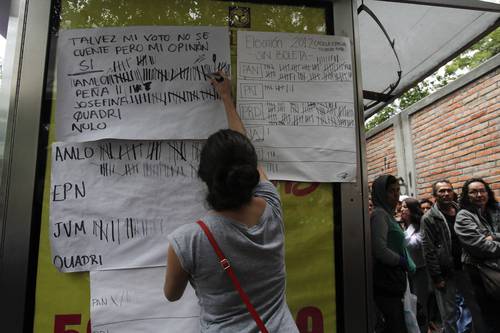 TALVEZ MI VOTO NO SE
CUENTE PERO MI OPINIÓN
SI
AMLO
PEÑA
JOSEFINA
QUADRI
NULO
AMLO
EPN
JVM
QUADRI
PAN
Elección 2012
SIN BOLETA
PAN
PRI
PRD